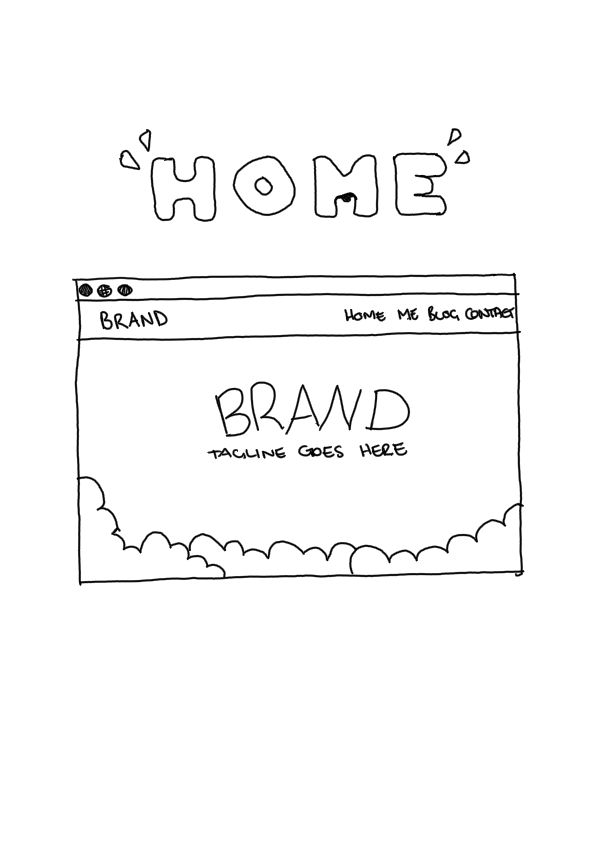 HOME
BRAND HOME ME BLOG CONTACT
BRAND
TAGLINE GOES HERE